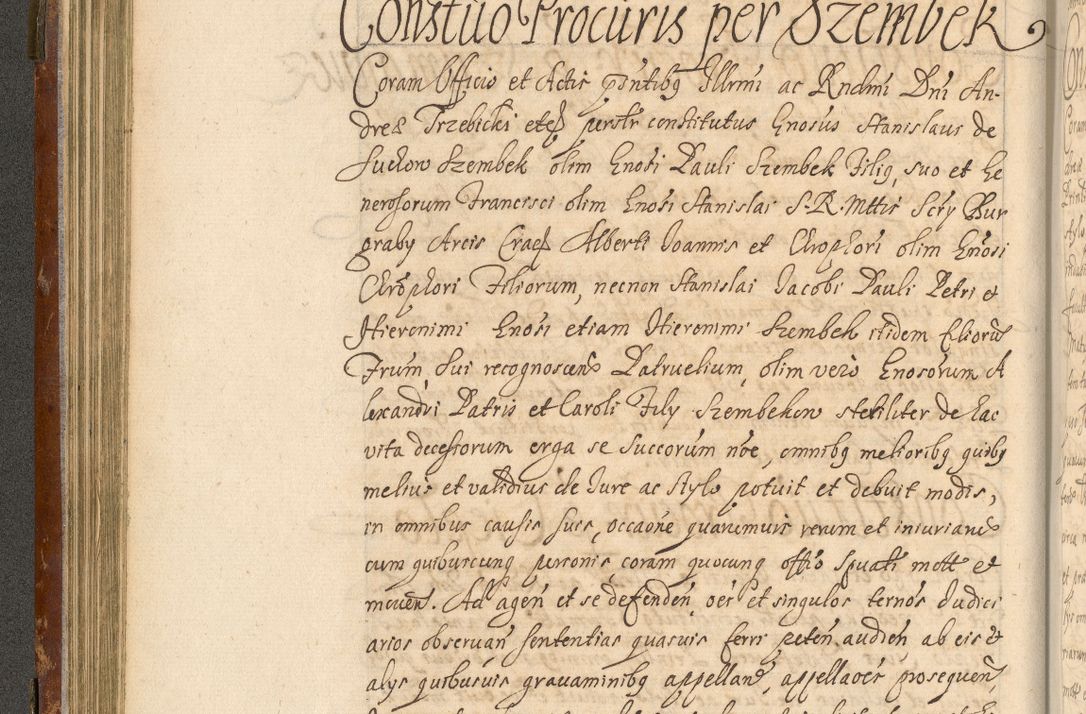 Constuo Procuris per Szembek
Coram Officio et Actis pntibq Illrmi ac Rndmi Dni An-
dreæ Trzebicki etc perstr constitutus Gnosus Stanislaus de
Suckow Szembek olim Gnosi Pauli Szembek Filiq, suo et Ge
nerosorum Francisci olim Gnosi Stanislai S. R. Mttis Scry Bur
graby Arcis Crac Alberti Joannis et Chrophori olim Gnosi
Chrophori Filiorum, necnon Stanislai Jacobi Pauli Petri et
Hieronimi Gnosi etiam Hieronimi Szembek itidem filiorū
Frūm sui recognoscen Patruelium, olim vero Gnosorum A
lexandri Patris et Caroli Fily Szembekow steriliter de hac
vita decessorum erga se succorum nōe, omnibq melioribq quibq
melius et validius de Jure ac stylo potuit et debuit modis,
in omnibus causis suis, occaone quarumvis rerum et iniuriarū
cum quibuscunq personis, coram quocunq offio spuali mott et
moven. Ad agen et se defenden, oes et singulos ternos Judici
arios observan sententias quasvis ferri peten, audien ab eis et
alys quibusvis gravaminibq appellan, appellaoes prosequen,